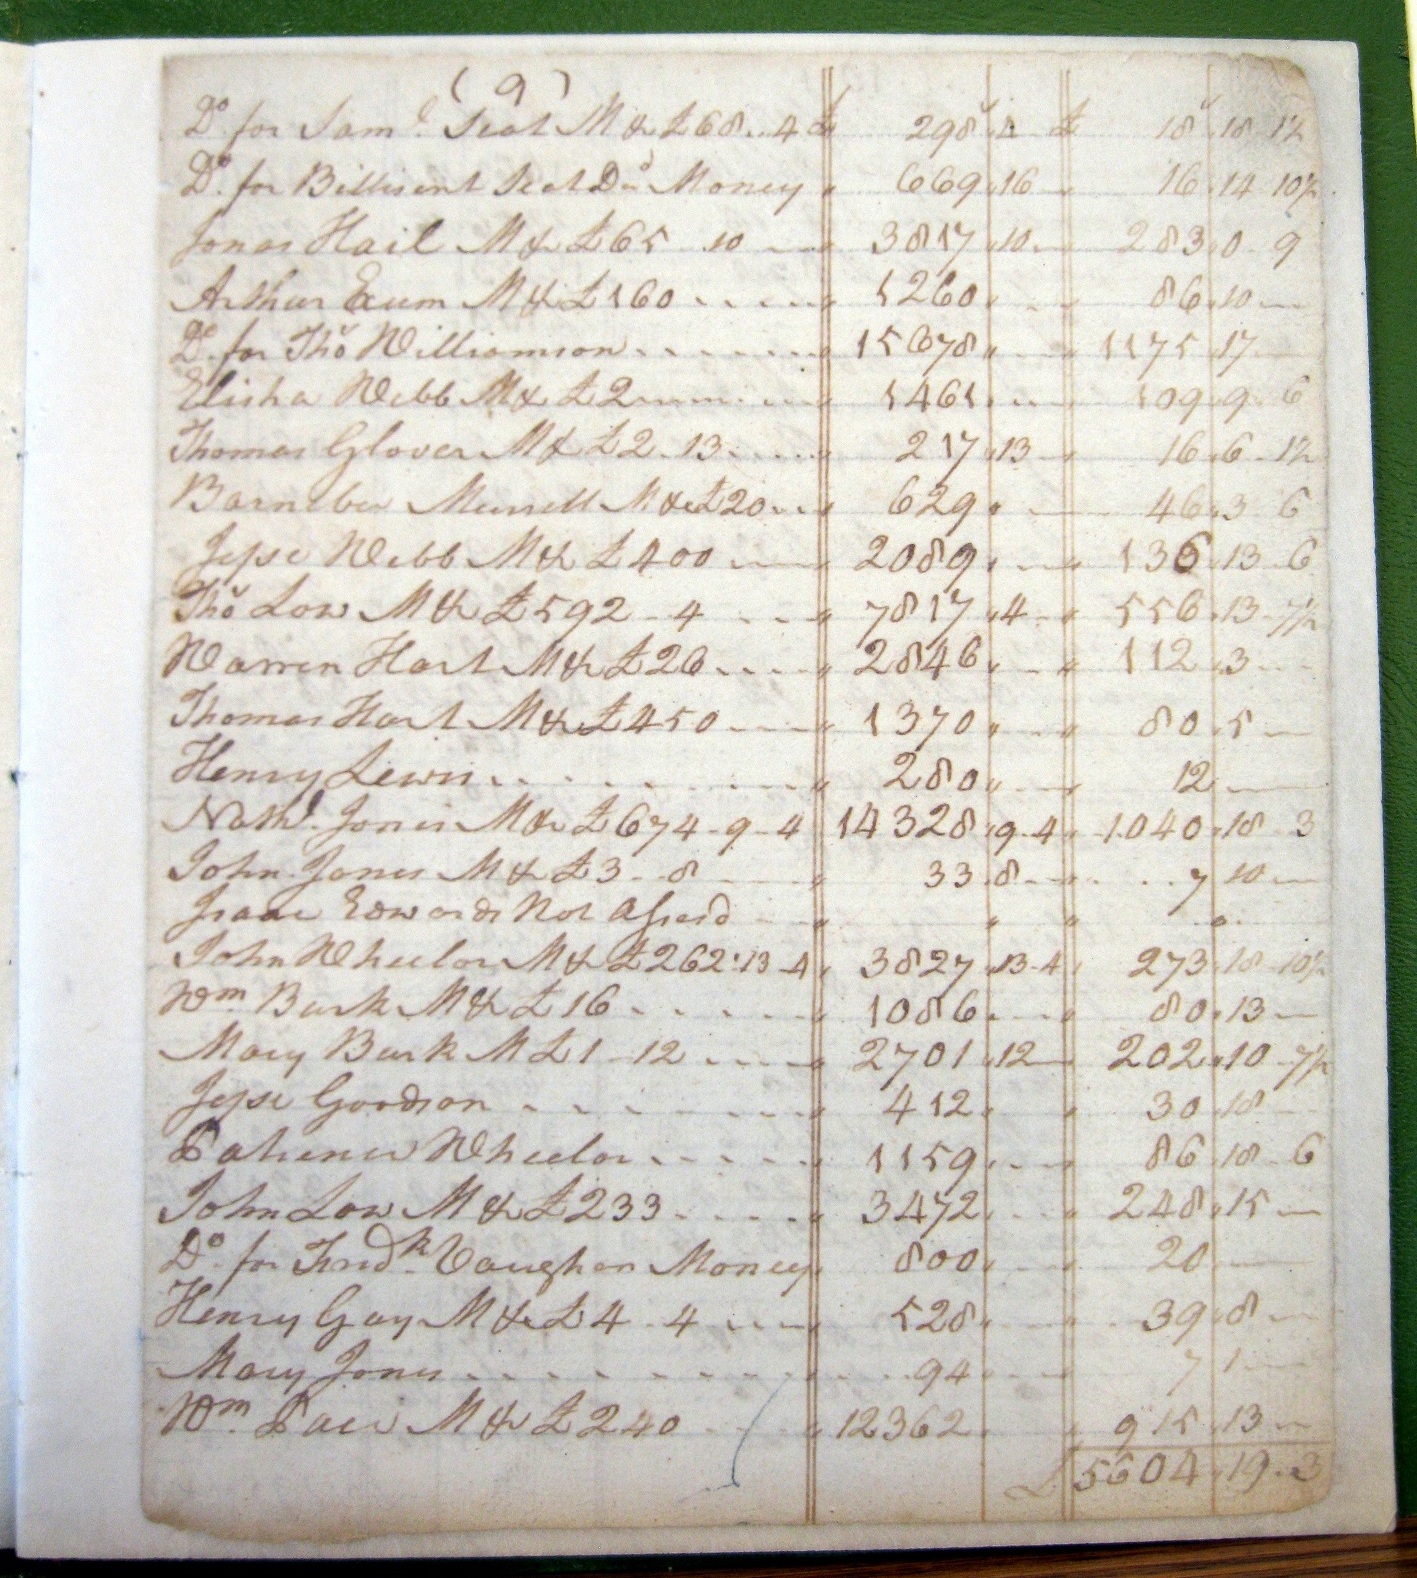 (9)
Do. for Saml. Scot M & £68..4 £ 298 4 £ 18 18 1½
Do. for Billisent Scot Do Money 669 16 16 14 10½
Jonas Hail M & £65 10 3817 10 283 0 9
Arthur Exum M & £160 1260 86 10
Do. for Thos Williamson 15678 1175 17
Elisha Webb M & £2 1461 109 9 6
Thomas Glover M & £2 13 217 13 16 6 1½
Barneber Murrell M & £20 629 46 3 6
Jesse Webb M & £400 2089 136 13 6
Thos Low M & £592 - 4 7817 4 556 13 7½
Warren Hart M & £26 2846 112 3
Thomas Hart M & £450 1370 80 5
Henry Lewis 280 12
Nathl. Jones M & £674 - 9 - 4 14328 9 4 1040 18 3
John Jones M & £3 - 8 33 8 7 10
Isaac Edwards Not Assesd
John Wheelor M & £262 13 4 3827 13 4 273 18 10½
Wm. Burk M & £16 1086 80 13
Mary Burk M £1 - 12 2701 12 202 10 7½
Jesse Goodson 412 30 18
Patience Wheelor 1159 86 18 6
John Low M & £233 3472 248 15
Do. for Fredk. Vaughan Money 800 20
Henry Gay M & £4 - 4 528 39 8
Mary Jones 94 7 1
Wm. Pace M & £240 12362 915 13
£ 5604 19 3